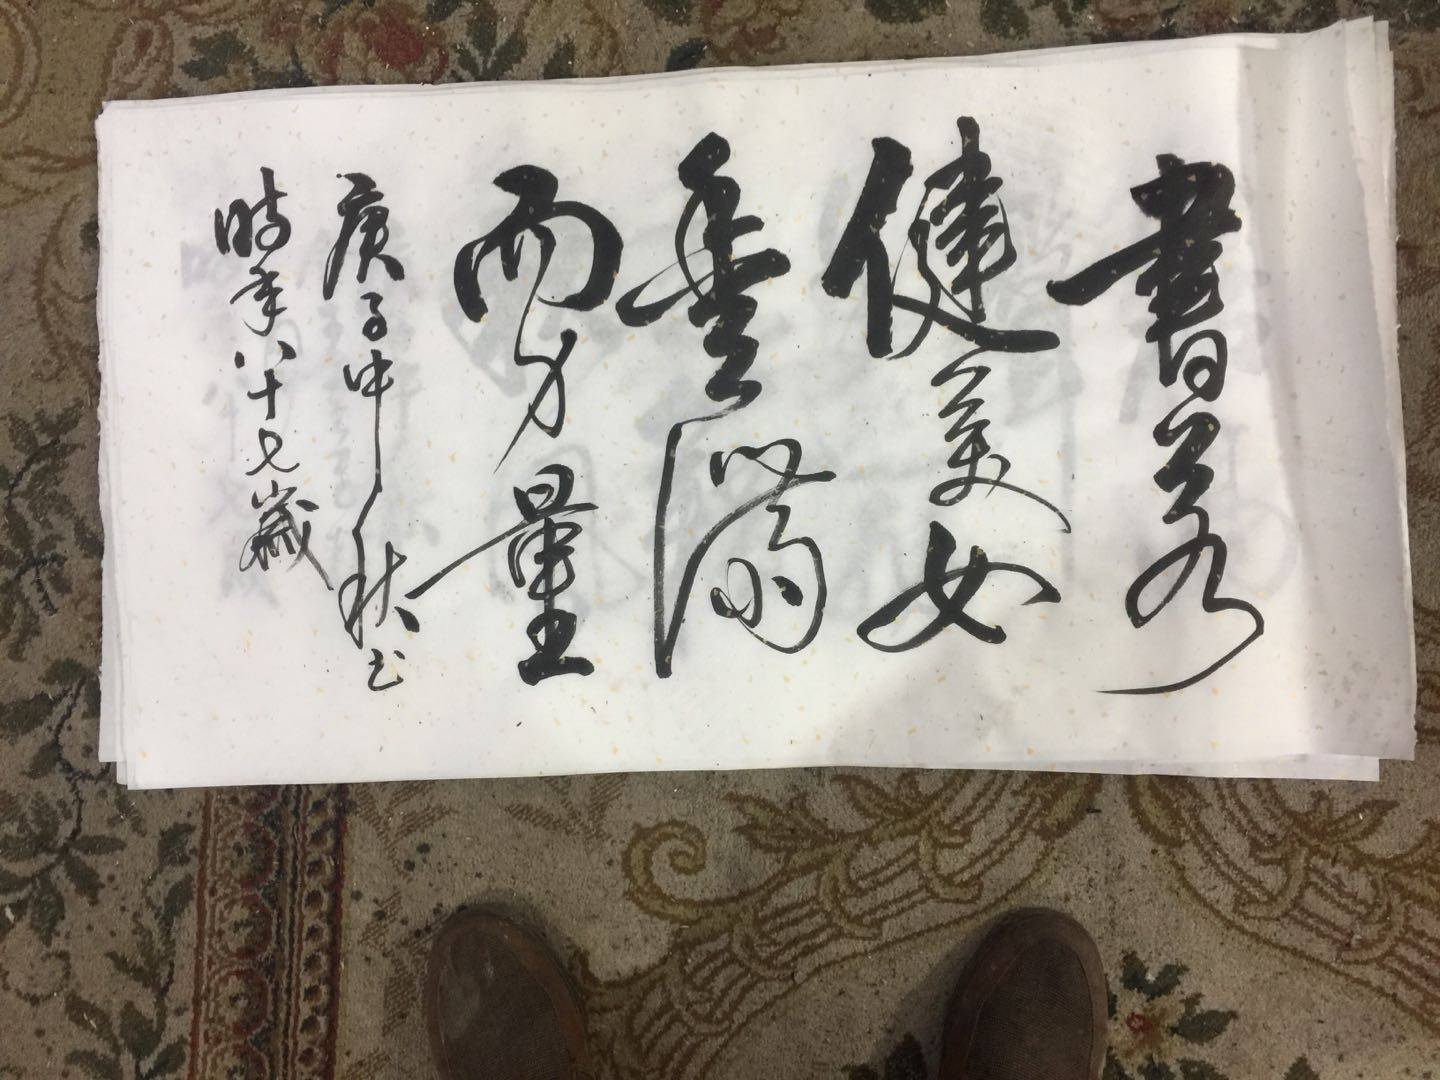 書若
健美女
豐滿
而力量
庚子中秋书
時年八十七歲